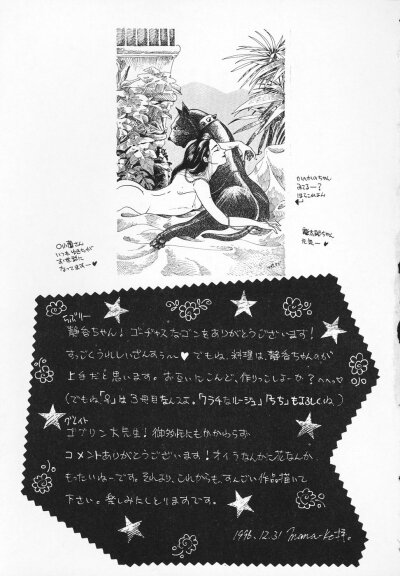 かいかいちゃん
みてるー?
龍太郎ちゃん
元気ー♥
〇小菌さん
いつもゆきちが
お世話に
なってますー♥
ラブリー
静香ちゃん!ゴーヂャスなゴンをありがとうございます!
すっごくうれしいざんすぅ〜♥でもね、料理は、静香ちゃんのが
上手だと思います。お互いこんど、作りっこしよーか?へへっ♡
(でもね「♀」は3冊目なんスよ。「フラチなルージュ」「うち」もよろしくね。)
グレイト
ゴブリン大先生!御多忙にもかかわらず
コメントありがとうございます!オイラなんかに花なんか、
もったいねーです。それより、これからも、すんごい作品描いて
下さい。楽しみにしとりますです。
1996.12.31 mana-ko拝。